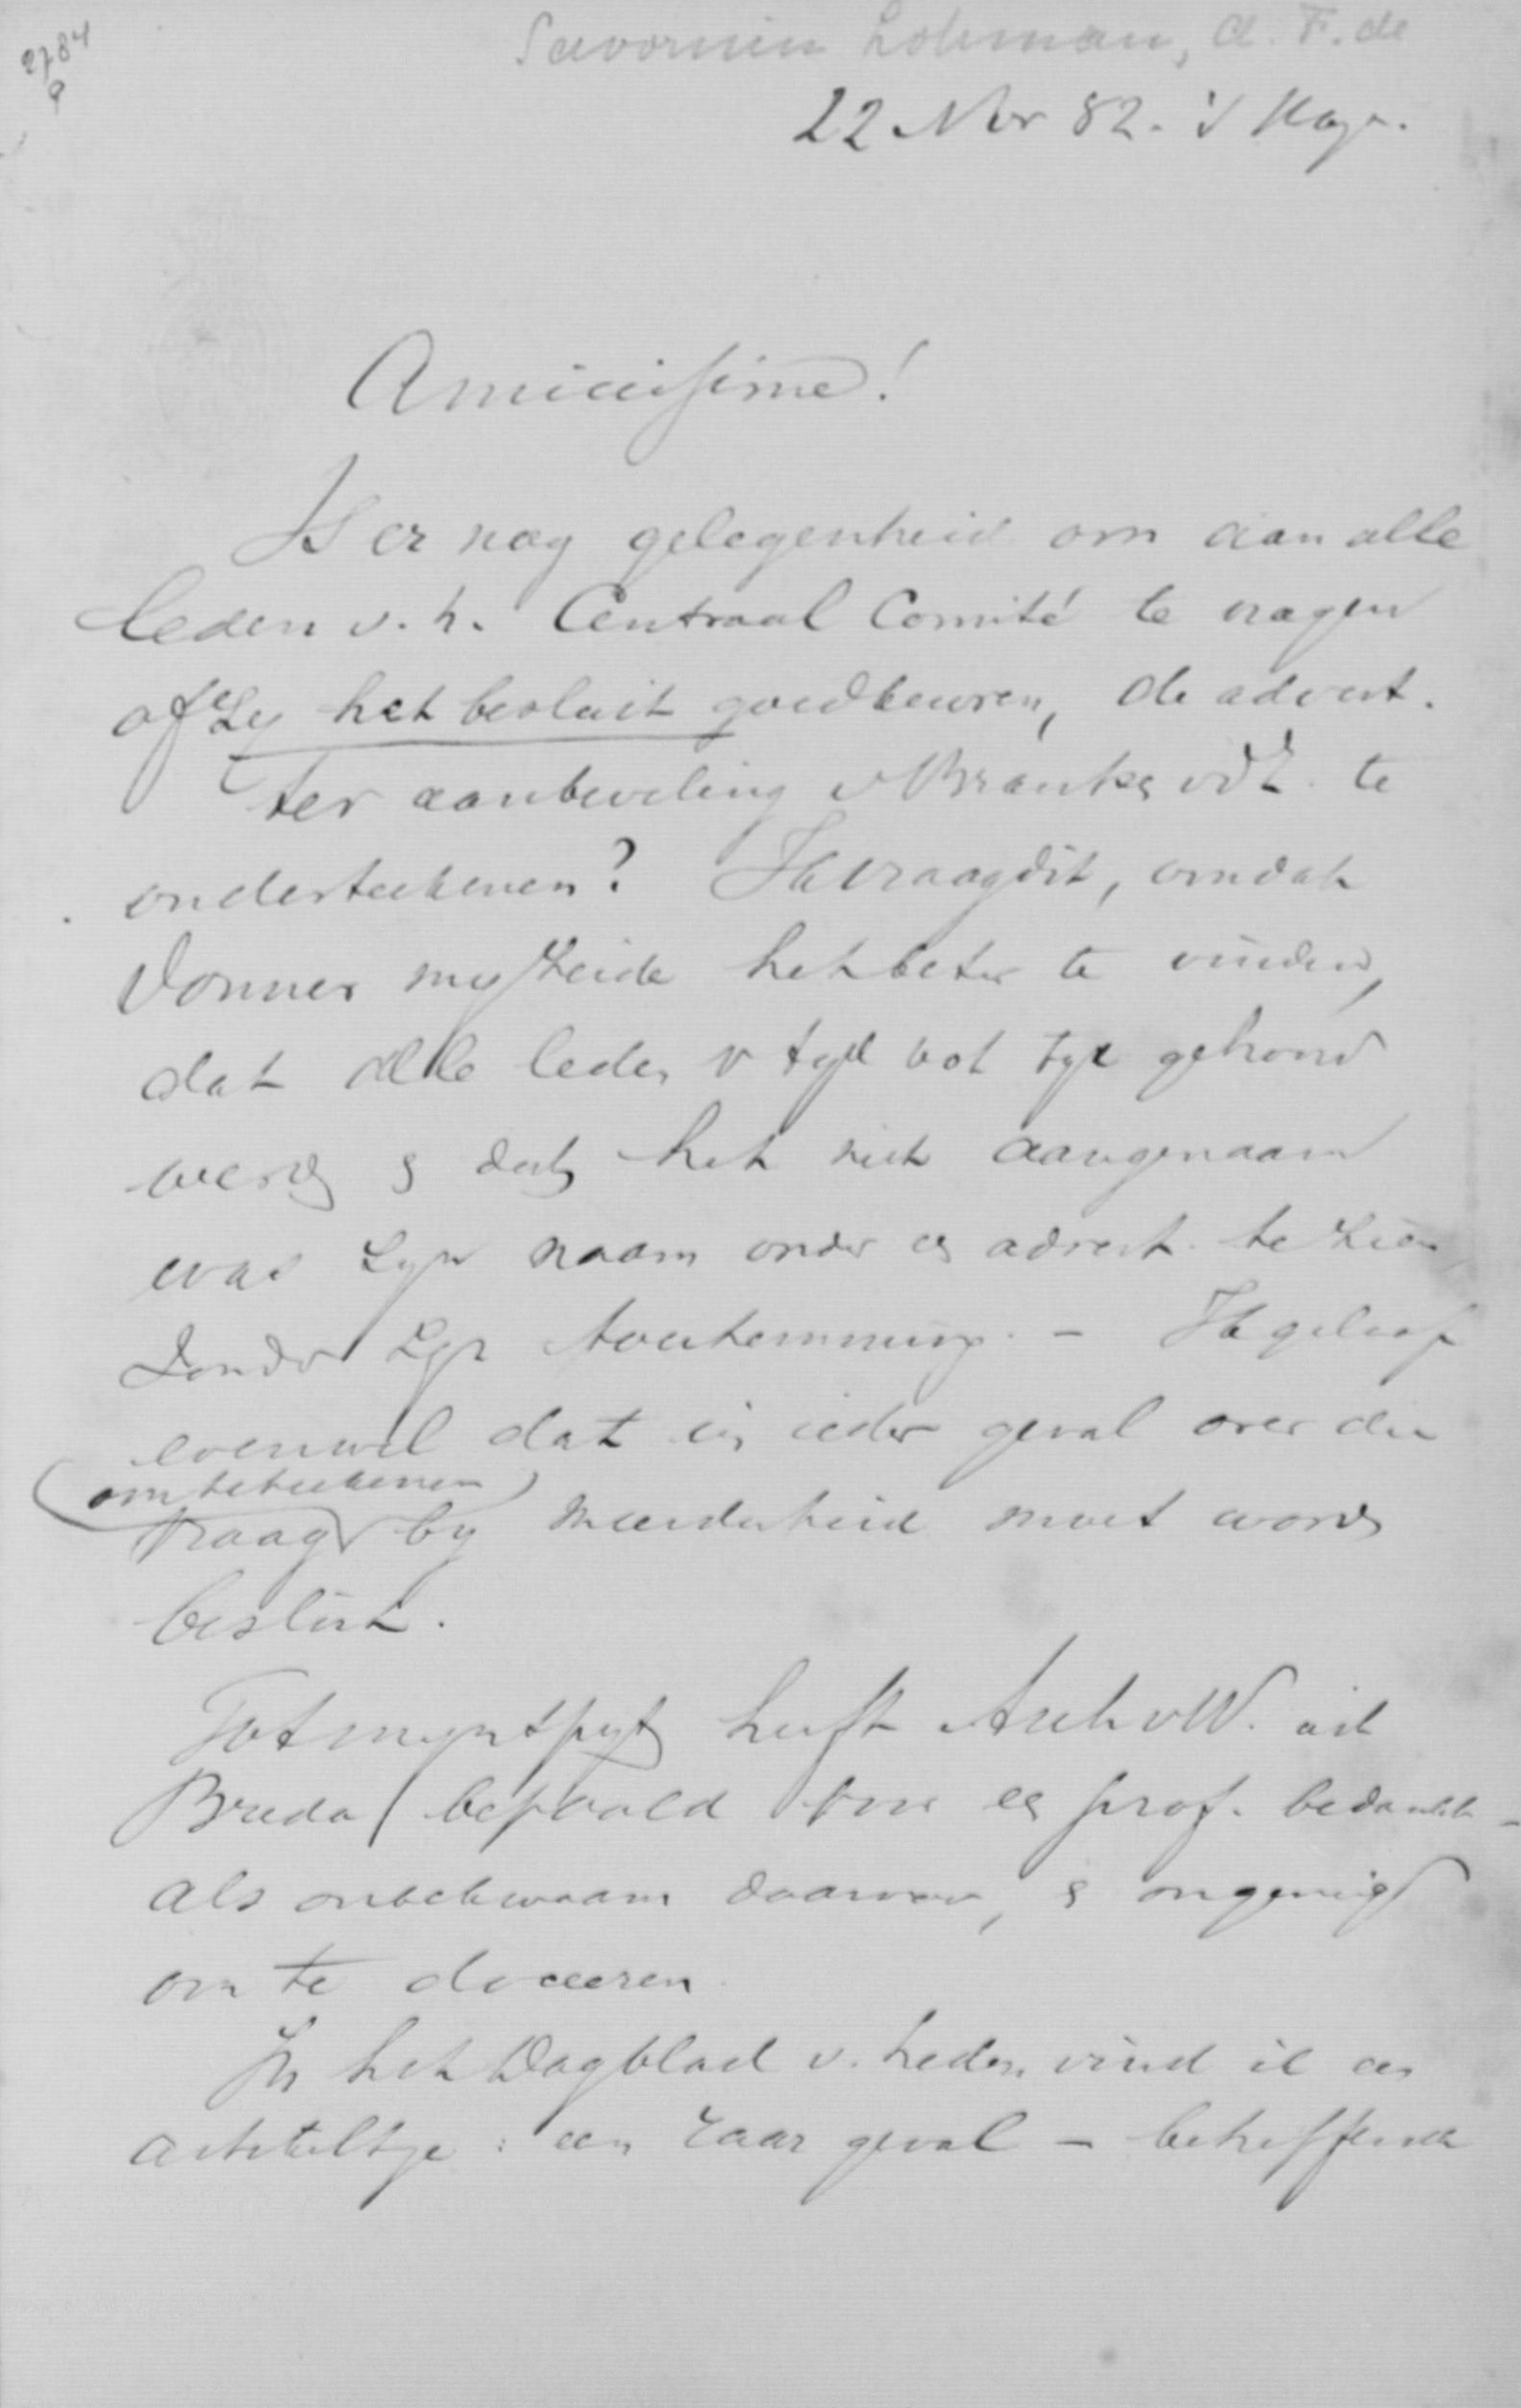 2784
Savornin Lohman, A. F. de
22 Nov 82. 's Hage.
Amicissime!
Is er nog gelegenheid om aan alle
leden v. h. Centraal Comité te vragen
of zy het besluit goedkeuren, de advert.
ter aanbeveling v Brants vd te
onderteekenen? Ik vraag dit, omdat
Donner my zeide het beter te vinden,
dat alle leden v tyd tot tyd gehoord
werden & dat het niet aangenaam
was zyn naam onder en advert. te zien
zonder zyn toestemming. - Ik geloof
evenwel dat in ieder geval over die
(om te teekenen)
vraag by meerderheid moet worden
beslist.
Tot myn spyt heeft Asch v W. uit
Breda bepaald voor en prof. bedankt -
als onbekwaam daarvoor, & ongenegen
om te doceeren
In het Dagblad v. heden vind ik een
artikeltje: een raar geval - betreffende